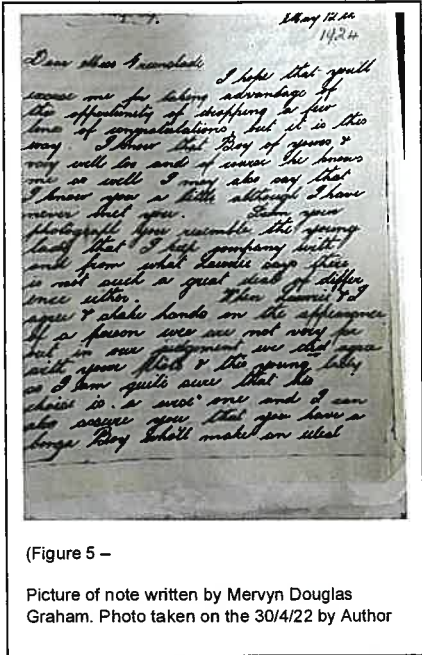 May 12th
1924
Dear Miss Greenslade
I hope that you'll
excuse me for taking advantage of
the opportunity of dropping a few
lines of congratulations, but it is this
way. I know that Boy of yours &
very well too and of course he knows
me so well I may also say that
I know you a little although I have
never met you. your
photograph you resemble the young
lady that I keep company with
and from what Laurie says there
is not such a great deal of differ
ence either. When Laurie & I
agree & shake hands on the appearance
of a person we are not very far
out in our judgment we did agree
with your photo & this young lady
so I am quite sure that his
choice is a wise one and I can
also assure you that you have a
bonga Boy who'll make an ideal
(Figure 5 –
Picture of note written by Mervyn Douglas
Graham. Photo taken on the 30/4/22 by Author